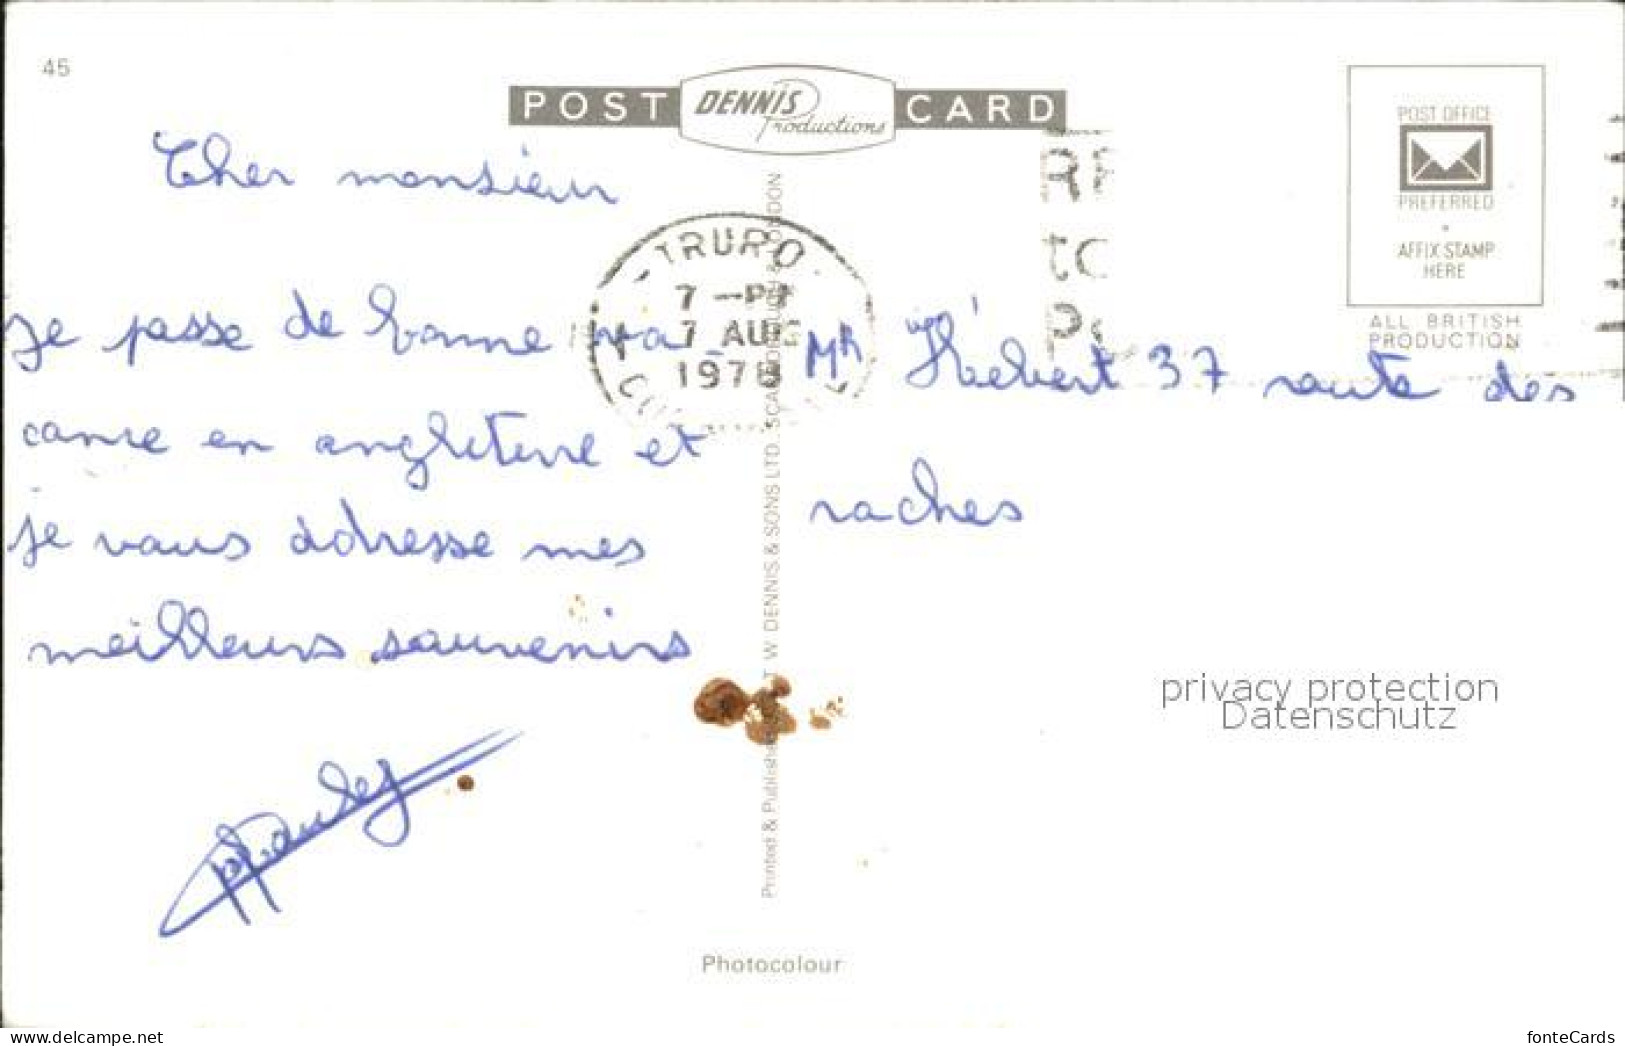 45
POST DENNIS Productions CARD
POST OFFICE
PREFERRED
AFFIX STAMP
HERE
ALL BRITISH
PRODUCTION
TRURO
7 -PM
7 AUG
197
Cher monsieur
je passe de bonne va_
cance en angleterre et
je vous adresse mes
meilleurs souvenirs
Mr Hébert 37 route des
raches
Printed & Published T. W. DENNIS & SONS LTD. SCARBOROUGH & LONDON
privacy protection
Datenschutz
Photocolour
www.delcampe.net
fonteCards